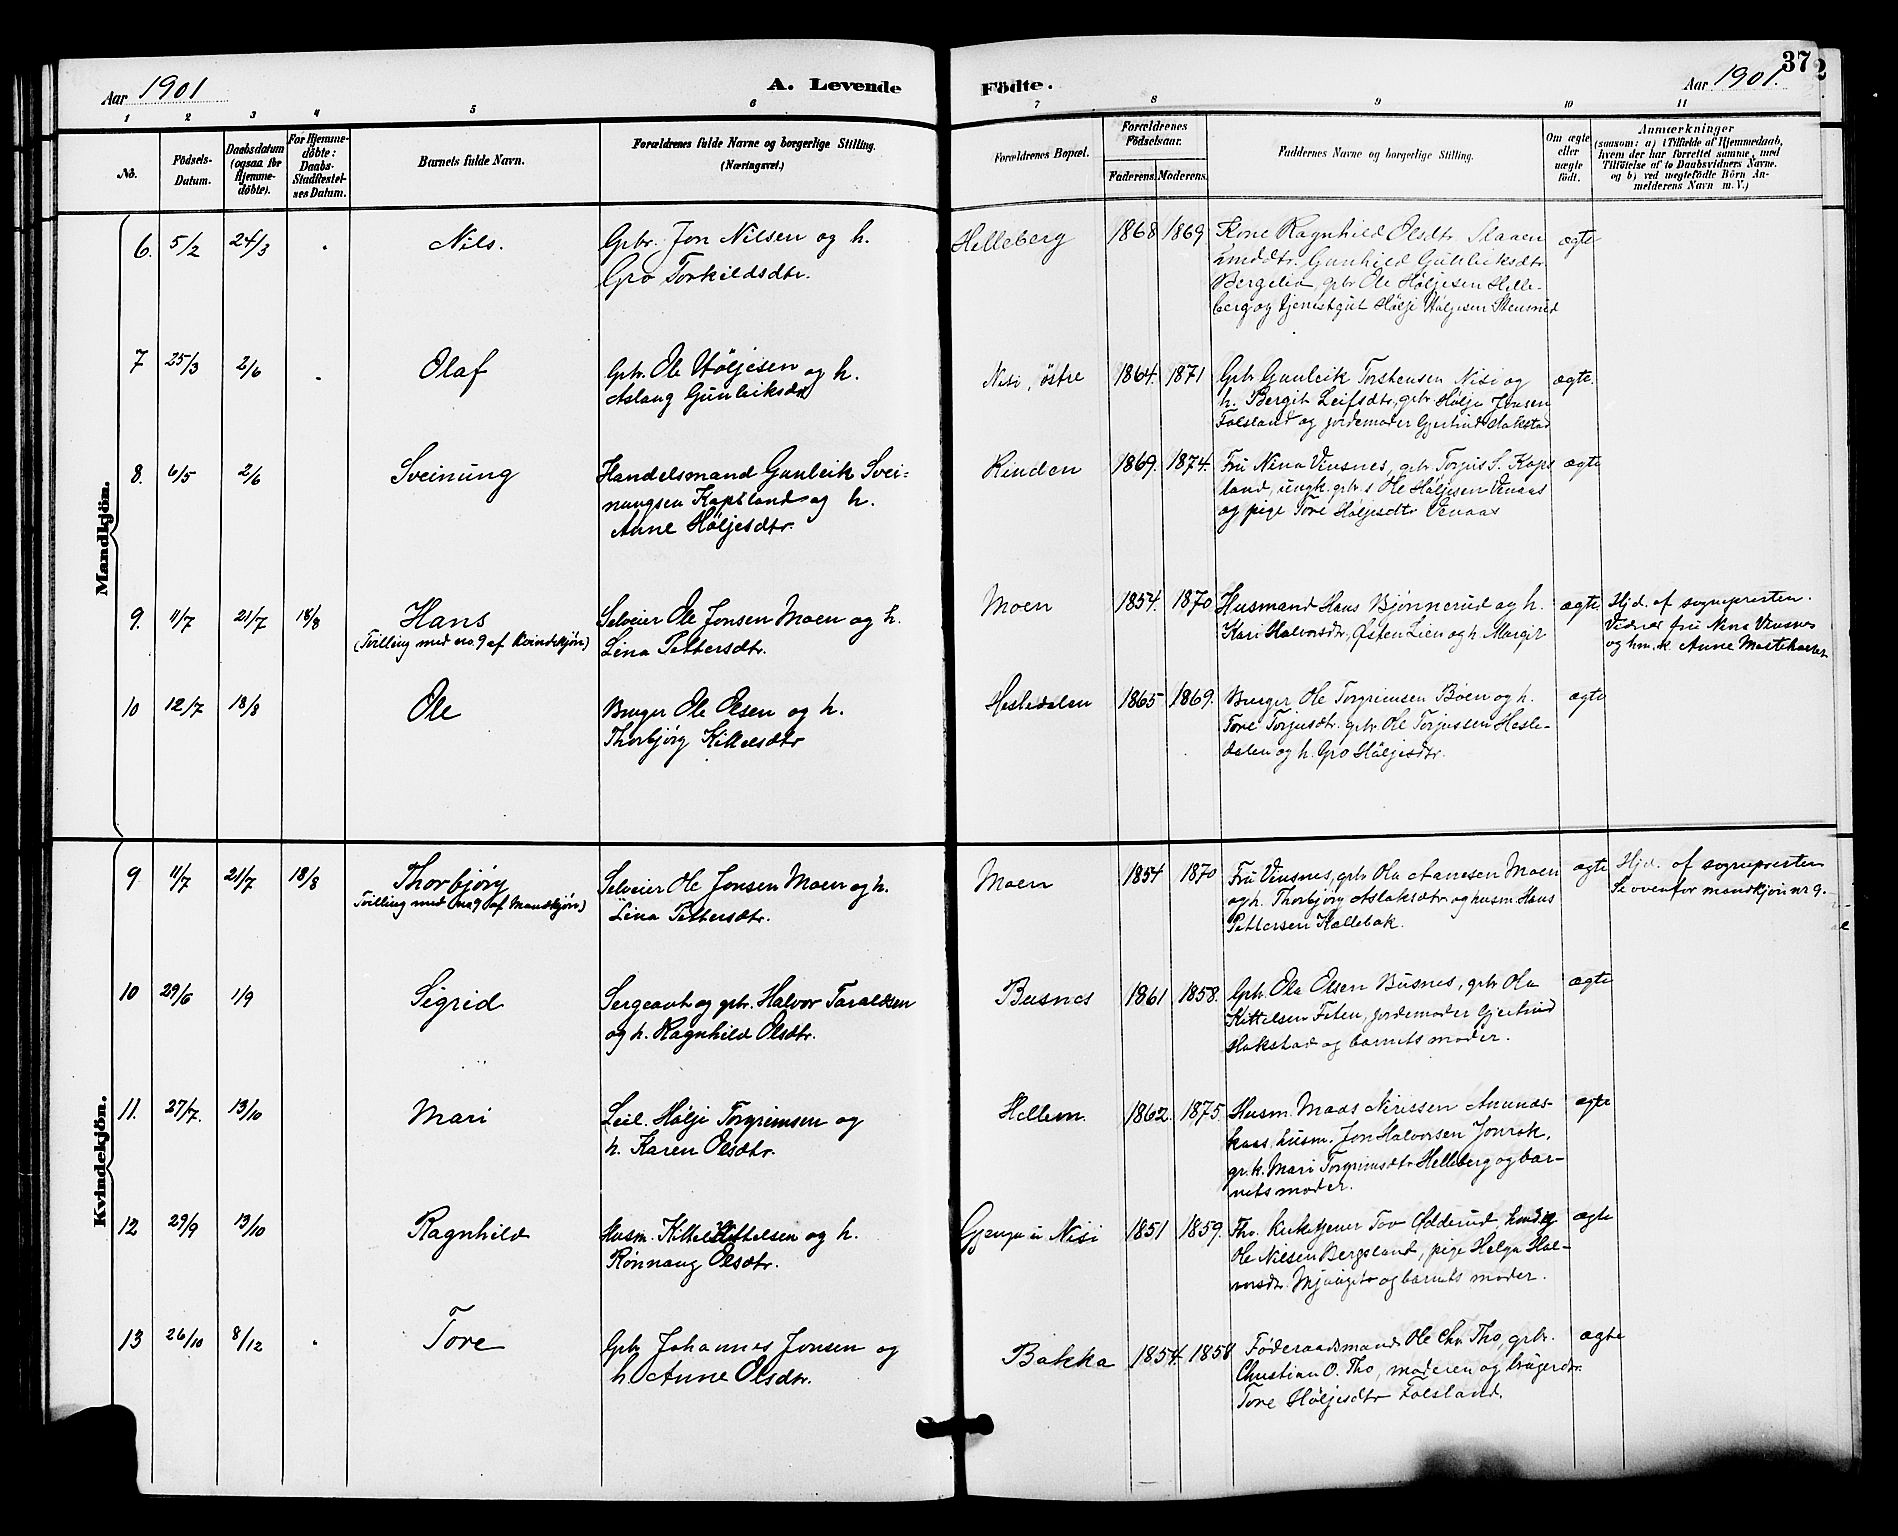 Aar 1901
A. Levende
Födte.
Aar 1901.
37
2
1 2 3 4 5 6 7 8 9 10 11
No.
Födsels-
Datum.
Daabsdatum
(ogsaa for
Hjemme-
döbte).
For Hjemme-
döbte:
Daabs-
Stadfæstel-
ses Datum.
Barnets fulde Navn.
Forældrenes fulde Navne og borgerlige Stilling.
(Næringsvei.)
Forældrenes Bopæl.
Forældrenes
Födselsaar.
Faderens. Moderens.
Faddernes Navne og borgerlige Stilling.
Om ægte
eller
uægte
født.
Anmærkninger
(saasom: a) i Tilfælde af Hjemmedaab,
hvem der har forrettet samme, med
Tilføielse af to Daabsvidners Navne,
og b) ved uægtefødte Börn An-
melderens Navn m. V.)
Mandkjön.
6. 5/2 24/3 Nils.
Gbr. Jon Nilsen og h.
Gro Torkildsdtr.
Helleberg 1868 1869
Kone Ragnhild Olsdtr. Staaen
Gunhild Gunleiksdtr.
Bergelid, gbr Ole Höljesen Helle-
berg og tjenestgut Hölje Höljesen Stensrud
ægte
7 25/3 2/6 Olaf
Gbr. Ole Höljesen og h.
Aslaug Gunleiksdtr
Nisi, östre 1864. 1871
Gbr Gunleik Torstensen Nisi og
h. Bergit Leifsdtr, gbr Hölje Jonsen
Folsland og jordemoder Gjertrud Hakstad
ægte.
8. 6/5 2/6 Sveinung
Handelsmand Gunleik Svei-
nungsen Kapsland og h.
Anne Höljesdtr.
Rinden 1869. 1874.
Fru Nina Vinsnes, gbr Torjus S. Kaps
land, ungk. gbr.s Ole Höljesen Venaas
og pige Tore Höljesdtr Venaas
ægte
9. 11/7 21/7 18/8 Hans
(Tvilling med no. 9 af Kvindekjön)
Selveier Ole Jonsen Moen og h.
Lina Pettersdtr.
Moen 1854. 1870
Husmand Hans Bjønnerud og h.
Kari Halvorsdtr, Østen Lien og h. Margit
ægte
Hjd. af sognepresten.
Vidner fru Nina Vinsnes
og hm. k. Anne
10 12/7 18/8 Ole
Bruger Ole Olsen og h.
Thorbjörg Kittelsdtr
Hesledalen 1865 1869.
Bruger Ole Torgrimsen Böen og h.
Tore Torjusdtr. gbr Ole Torjussen Hesle-
dalen og h. Gro Höljesdtr.
ægte
Kvindekjön.
9 11/7 21/7 18/8 Thorbjörg
Tvilling med no 9 af Mandkjön)
Selveier Ole Jonsen Moen og h.
Lina Pettersdtr.
Moen 1854 1870
Fru Vinsnes, gbr Ola Aanesen Moen
og h. Thorbjörg Aslaksdtr og husm. Hans
Pettersen Kallebak.
ægte
Hjd. af sognepresten
Se ovenfor mandkjön nr 9.
10 29/6 1/9 Sigrid
Sergeant og gbr. Halvor Taraldsen
og h. Ragnhild Olsdtr.
Busnes 1861 1858.
Gbr. Ola Olsen Busnes, gbr Ola
Kittelsen Feten, jordemoder Gjertrud
Hakstad og barnets moder.
ægte
11. 27/7. 13/10 Mari
Leil. Hölje Torgrimsen og
h. Karen Olsdtr.
Hellem. 1862. 1875.
Husm. Mads Nirissen Amunds-
kaas, husm. Jon Halvorsen Jonrok,
gr. k. Mari Torgrimsdtr Helleberg og bar-
nets moder.
ægte
12 29/9 13/10 Ragnhild
Husm. Kittel Kittelsen og h.
Rönnaug Olsdtr.
i Nisi 1851 1859.
Tho. kirketjener Tov Odderud,
Ole Nilsen Bergsland, pige Helga Hal-
vorsdtr og barnets moder.
ægte
13 26/10 8/12 Tore
Gbr Johannes Jonsen og
h. Anne Olsdtr.
Bakka 1854. 1858
Föderaadsmand Ole Chr. Tho, gbr.
Christian O. Tho, moderen og brugerdtr.
Tore Höljesdtr Folsland.
ægte